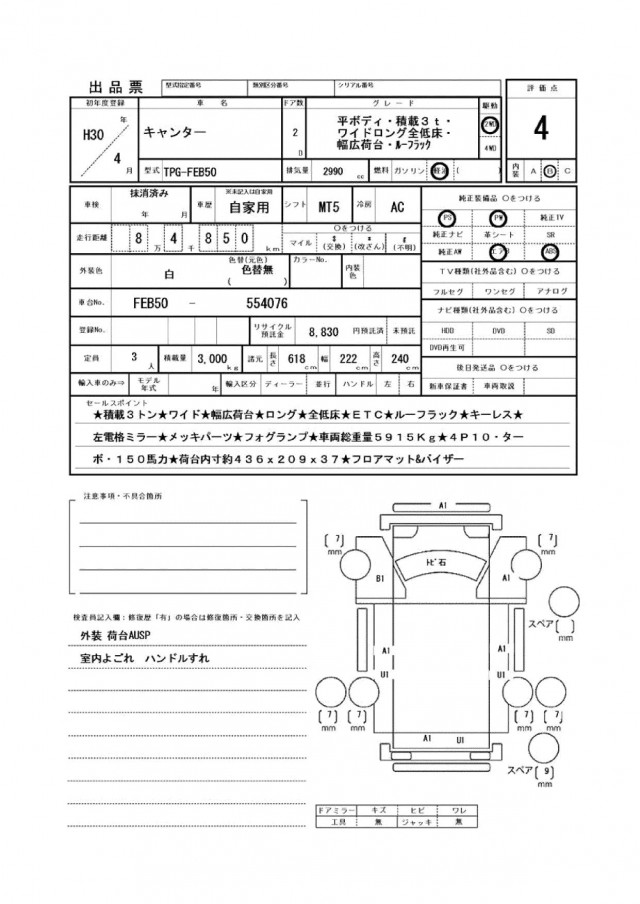 出品票 型式指定番号 類別区分番号 シリアル番号
初年度登録 車名 ドア数 グレード 駆動 評価点
H30 年 4 月 キャンター 2 D
平ボディ・積載3t・
ワイドロング全低床・
幅広荷台・ルーフラック
2WD 4WD
4
型式 TPG-FEB50 排気量 2990 cc 燃料 ガソリン 軽油 ( ) 内装 A B C
車検 抹消済み 年 月 車歴 ※未記入は自家用 自家用 シフト MT5 冷房 AC
走行距離 8 万 4 千 8 5 0 km 〇をつける マイル $ (交換) * (改ざん) # (不明)
外装色 白 色替(元色) 色替無 ( ) カラーNo. 内装色
車台No. FEB50 - 554076
登録No. リサイクル預託金 8,830 円預託済 未預託
定員 3 人 積載量 3,000 kg 諸元 長さ 618 cm 幅 222 cm 高さ 240 cm
輸入車のみ⇒ モデル年式 年 輸入区分 ディーラー 並行 ハンドル 左 右
純正装備品 〇をつける
PS PW 純正TV
純正ナビ 革シート SR
純正AW エアB ABS
TV種類(社外品含む) 〇をつける
フルセグ ワンセグ アナログ
ナビ種類(社外品含む) 〇をつける
HDD DVD SD
DVD再生可
後日発送品 〇をつける
新車保証書 車両取説
セールスポイント
★積載3トン★ワイド★幅広荷台★ロング★全低床★ETC★ルーフラック★キーレス★
左電格ミラー★メッキパーツ★フォグランプ★車両総重量5915Kg★4P10・ター
ボ・150馬力★荷台内寸約436x209x37★フロアマット&バイザー
注意事項・不具合箇所
検査員記入欄:修復歴「有」の場合は修復箇所・交換箇所を記入
外装 荷台AUSP
室内よごれ ハンドルすれ
A1
( 7 ) mm ( 7 ) mm
トビ石
B1 A1
スペア( ) mm
A1 A1
U1 U1
( 7 ) mm ( 7 ) mm ( 7 ) mm ( 7 ) mm
A1 U1
スペア( 9 ) mm
ドアミラー キズ ヒビ ワレ
工具 無 ジャッキ 無